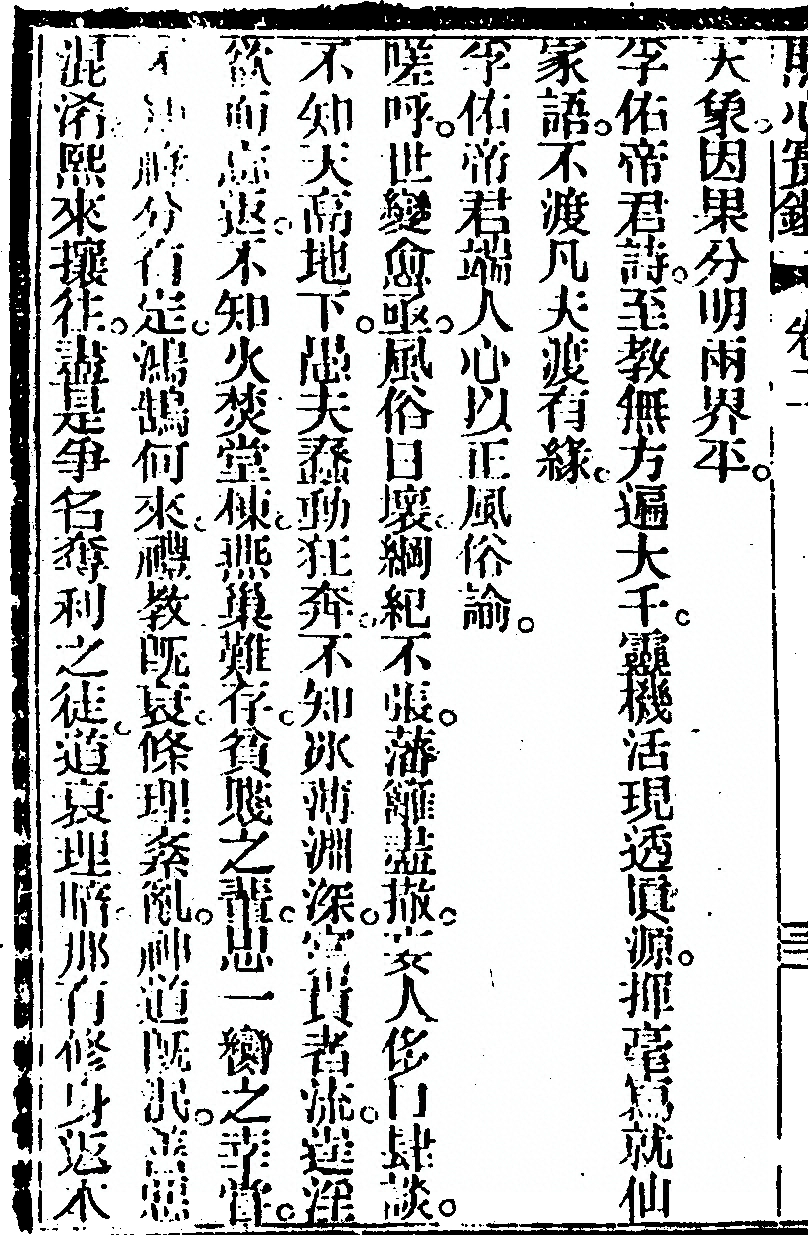 照心寶鑑 卷二 三
大象。因果分明兩界平。
李佑帝君詩。至教無方遍大千。靈機活現透眞源。揮毫寫就仙
家語。不渡凡夫渡有緣。
李佑帝君端人心以正風俗諭。
嗟呼。世變愈亟。風俗日壞。綱紀不張。藩籬盡撤。妄人侈口肆談。
不知天高地下。愚夫蠢動狂奔。不知冰薄淵深。富貴者流。逞淫
欲而忘返。不知火焚堂棟。燕巢難存。貧賤之輩。思一臠之幸嘗。
不知 分有定。鴻鵠何來。禮教旣衰。條理紊亂。神道旣泯。善惡
混淆。熙來攘往。盡是爭名奪利之徒。道衰理晦。那有修身返本